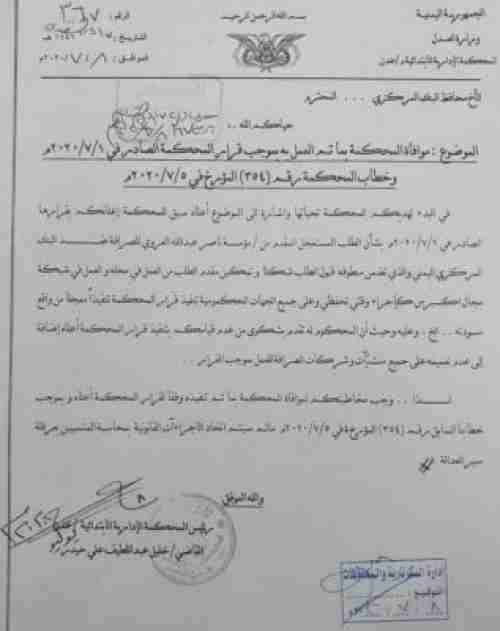 الجمهورية اليمنية
وزارة العدل
المحكمة الإدارية الابتدائية م/عدن
بسم الله الرحمن الرحيم
الرقم:
التاريخ:
الموافق:
الأخ محافظ البنك المركزي ... المحترم
حياكم الله ..
الموضوع: موافاة المحكمة بما تم العمل به بموجب قرار المحكمة الصادر في ٢٠٢٠/٧/١م
وخطاب المحكمة رقم (٣٥٤) المؤرخ في ٢٠٢٠/٧/٥م
في البدء تهديكم المحكمة تحياتها وإشارة إلى الموضوع أعلاه سبق للمحكمة إبلاغكم بقرارها
الصادر في ٢٠٢٠/٧/١م بشأن الطلب المستعجل المقدم من / مؤسسة ناصر عبدالله العروي للصرافة ضد البنك
المركزي اليمني والذي تضمن منطوقه قبول الطلب شكلا وتمكين مقدم الطلب من العمل في محله والعمل في شبكة
كإجراء وقتي تحفظي وعلى جميع الجهات الحكومية تنفيذ قرار المحكمة تنفيذاً معجلاً من واقع
مسودته .. الخ، وعليه وحيث أن المحكوم له تقدم بشكوى من عدم قيامكم بتنفيذ قرار المحكمة أعلاه إضافة
إلى عدم تعميمه على جميع منشآت وشركات الصرافة للعمل بموجب القرار ..
لـــذا .. وجب مخاطبتكم لموافاة المحكمة بما تم تنفيذه وفقاً لقرار المحكمة أعلاه وبموجب
خطابنا السابق رقم (٣٥٤) المؤرخ في ٢٠٢٠/٧/٥م مالم سيتم اتخاذ الإجراءات القانونية بمحاسبة المتسببين بعرقلة
سير العدالة
والله الموفق
رئيس المحكمة الإدارية الابتدائية م/عدن
القاضي / خليل عبد اللطيف علي
إدارة السكرتارية والمحفوظات
التوقيع: